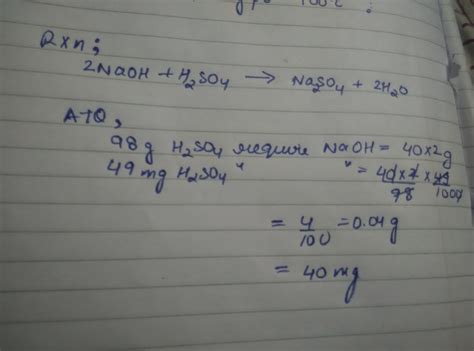 Rxn;
2NaOH + H₂SO₄ → Na₂SO₄ + 2H₂O
ATQ,
98g H₂SO₄ require NaOH = 40×2g
49 mg H₂SO₄ " " = 40×2 × 49 / 98 1000
= 4/100 = 0.04g
= 40mg